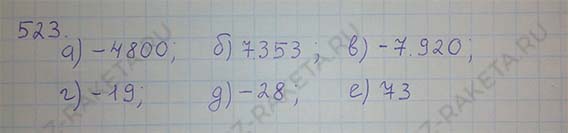 523.
а) -4800; б) 7353; в) -7.920;
г) -19; д) -28; е) 73
Z-RAKETA.RU